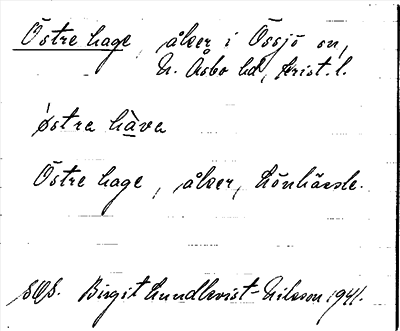 Östre hage, åker i Össjö sn,
N. Åsbo hd, Krist. l.
østra hàva
Östre hage, åker, Lönhärde.
SOS. Birgit Lundkvist-Nilsson 1941.